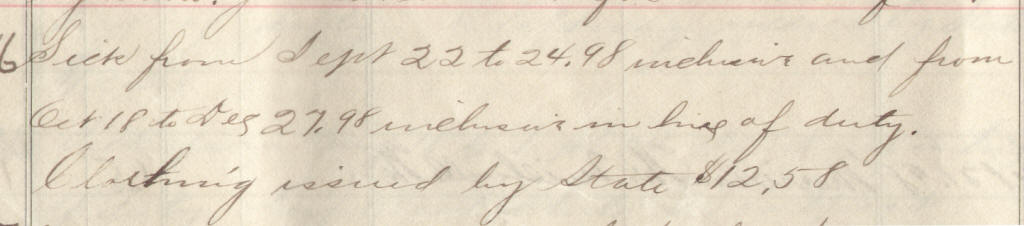 6 Sick from Sept 22 to 24.98 inclusive and from
Oct 18 to Dec 27.98 inclusive in line of duty.
Clothing issued by State $12,58